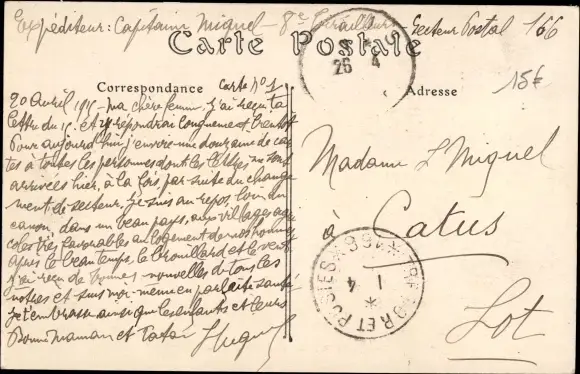 Expéditeur: Capitaine Miquel - 8e Tirailleurs - Secteur Postal 166
Carte Postale
26 4
15€
Correspondance Carte No 1
Adresse
20 Avril 1915 - Ma chère femme, J'ai reçu ta
lettre du 15. et y répondrai longuement et bientôt
Pour aujourd'hui j'envoie une douzaine de car
tes à toutes les personnes dont les lettres me sont
arrivées hier, à la fois par suite du change
ment de secteur. Je suis au repos, loin du
canon, dans un beau pays, aux villages agri
coles très favorables au logement de nos hommes
après le beau temps, le brouillard et le vent
J'ai reçu de bonnes nouvelles de tous les
nôtres et suis moi-même en parfaite santé
Je t'embrasse ainsi que les enfants et leurs
Bonne Maman et Tatie JMiquel
Madame L Miquel
à Catus
Lot
TRESOR ET POSTES * 166 *
1 4
*